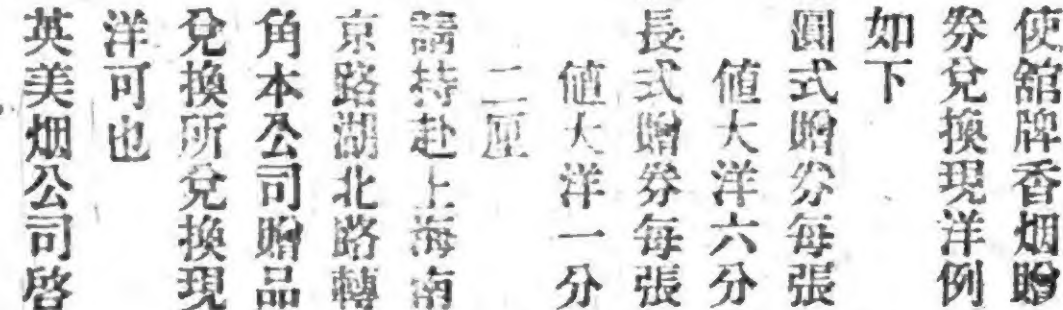 使舘牌香烟贈
券兌換現洋例
如下
圓式贈券每張
值大洋六分
長式贈券每張
值大洋一分
二厘
請持赴上海南
京路湖北路轉
角本公司贈品
兌換所兌換現
洋可也
英美烟公司啓